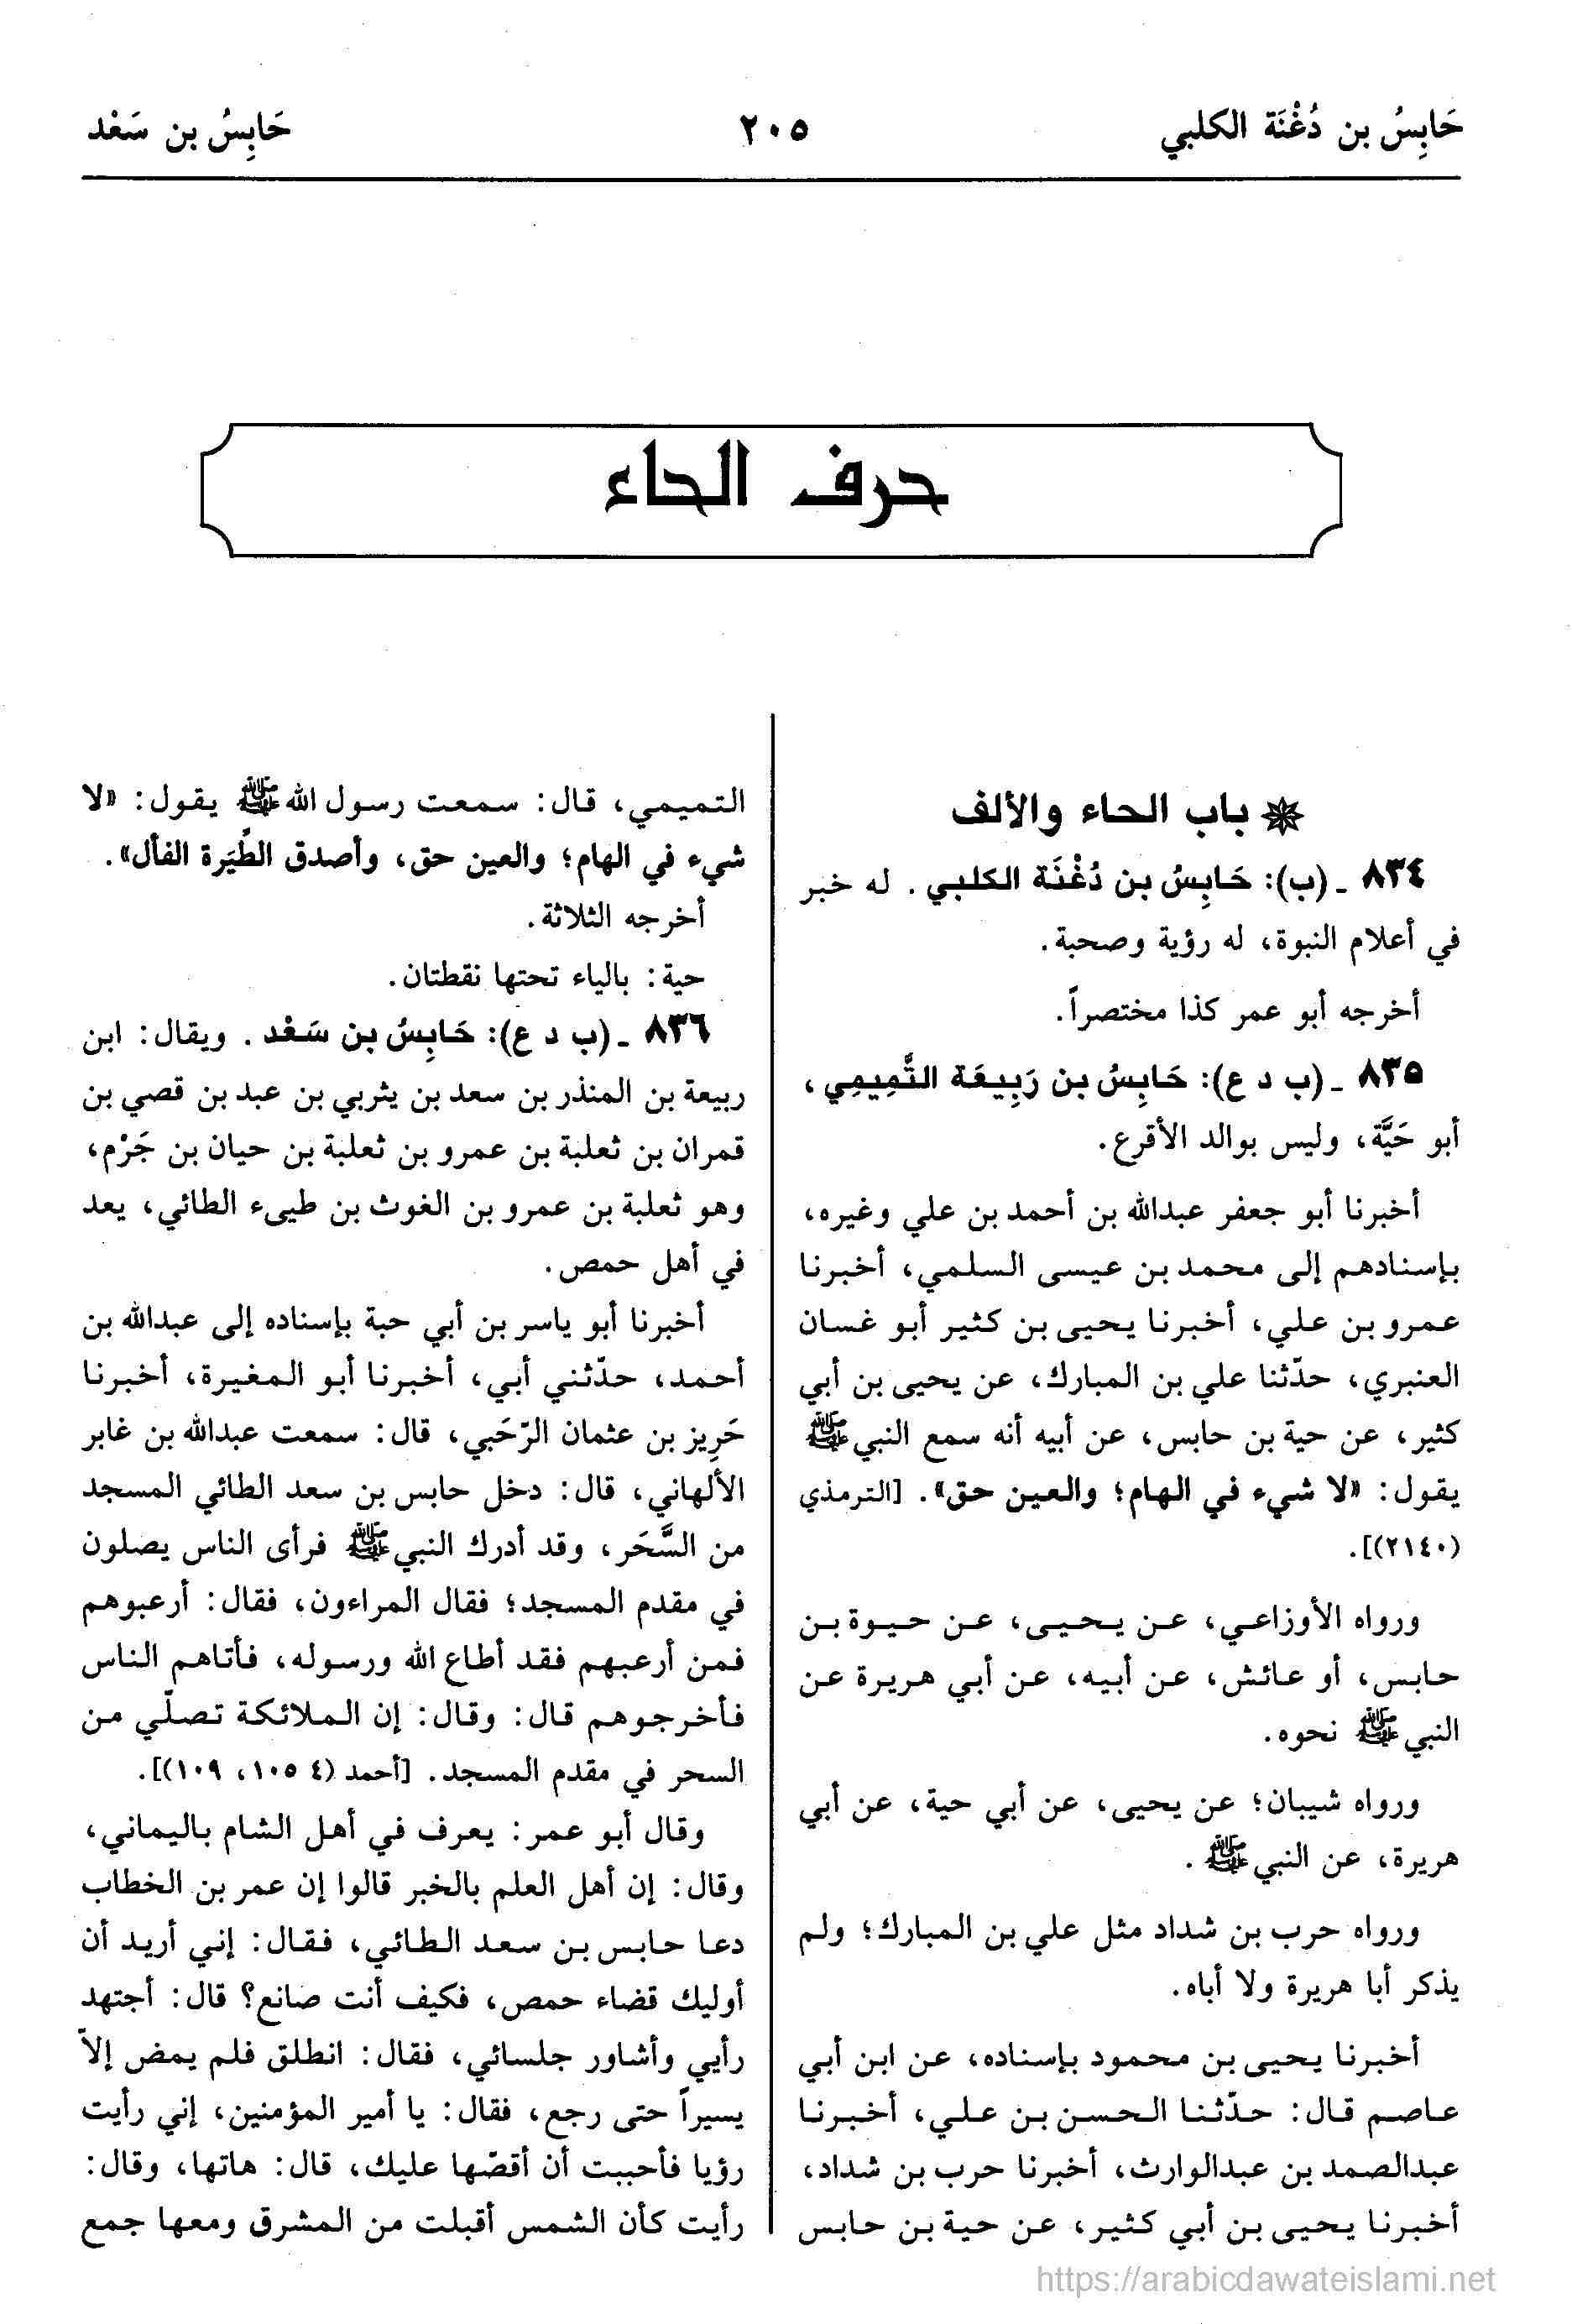 حَابِسُ بن دُغْنَة الكلبي
٢٠٥
حَابِسُ بن سَعْد
حرف الحاء
باب الحاء والألف
٨٣٤ ـ (ب): حَابِسُ بن دُغْنَة الكلبي. له خبر
في أعلام النبوة، له رؤية وصحبة.
أخرجه أبو عمر كذا مختصراً.
٨٣٥ ـ (ب د ع): حَابِسُ بن رَبِيعَة التَّمِيمِي،
أبو حَيَّة، وليس بوالد الأقرع.
أخبرنا أبو جعفر عبدالله بن أحمد بن علي وغيره،
بإسنادهم إلى محمد بن عيسى السلمي، أخبرنا
عمرو بن علي، أخبرنا يحيى بن كثير أبو غسان
العنبري، حدّثنا علي بن المبارك، عن يحيى بن أبي
كثير، عن حية بن حابس، عن أبيه أنه سمع النبي ﷺ
يقول: «لا شيء في الهام؛ والعين حق». [الترمذي
(٢١٤٠)].
ورواه الأوزاعي، عن يحيى، عن حيوة بن
حابس، أو عائش، عن أبيه، عن أبي هريرة عن
النبي ﷺ نحوه.
ورواه شيبان؛ عن يحيى، عن أبي حية، عن أبي
هريرة، عن النبي ﷺ.
ورواه حرب بن شداد مثل علي بن المبارك؛ ولم
يذكر أبا هريرة ولا أباه.
أخبرنا يحيى بن محمود بإسناده، عن ابن أبي
عاصم قال: حدّثنا الحسن بن علي، أخبرنا
عبدالصمد بن عبدالوارث، أخبرنا حرب بن شداد،
أخبرنا يحيى بن أبي كثير، عن حية بن حابس
التميمي، قال: سمعت رسول الله ﷺ يقول: «لا
شيء في الهام؛ والعين حق، وأصدق الطِّيَرة الفأل».
أخرجه الثلاثة.
حية: بالياء تحتها نقطتان.
٨٣٦ ـ (ب د ع): حَابِسُ بن سَعْد. ويقال: ابن
ربيعة بن المنذر بن سعد بن يثربي بن عبد بن قصي بن
قمران بن ثعلبة بن عمرو بن ثعلبة بن حيان بن جَرْم،
وهو ثعلبة بن عمرو بن الغوث بن طيىء الطائي، يعد
في أهل حمص.
أخبرنا أبو ياسر بن أبي حبة بإسناده إلى عبدالله بن
أحمد، حدّثني أبي، أخبرنا أبو المغيرة، أخبرنا
حَرِيز بن عثمان الرّحَبي، قال: سمعت عبدالله بن غابر
الألهاني، قال: دخل حابس بن سعد الطائي المسجد
من السَّحَر، وقد أدرك النبي ﷺ فرأى الناس يصلون
في مقدم المسجد؛ فقال المراءون، فقال: أرعبوهم
فمن أرعبهم فقد أطاع الله ورسوله، فأتاهم الناس
فأخرجوهم قال: وقال: إن الملائكة تصلّي من
السحر في مقدم المسجد. [أحمد (٤ ١٠٥، ١٠٩)].
وقال أبو عمر: يعرف في أهل الشام باليماني،
وقال: إن أهل العلم بالخبر قالوا إن عمر بن الخطاب
دعا حابس بن سعد الطائي، فقال: إني أريد أن
أوليك قضاء حمص، فكيف أنت صانع؟ قال: أجتهد
رأيي وأشاور جلسائي، فقال: انطلق فلم يمض إلاّ
يسيراً حتى رجع، فقال: يا أمير المؤمنين، إني رأيت
رؤيا فأحببت أن أقصّها عليك، قال: هاتها، وقال:
رأيت كأن الشمس أقبلت من المشرق ومعها جمع
https://arabicdawateislami.net